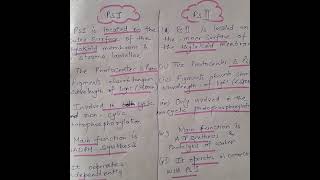 PS I
PSI is located on the
outer surface of the
thylakoid membrane &
stroma lamellae.
The Photocenter is P700
Pigments absorb longer
wavelength of
Involved in both cyclic
and non-cyclic
photophosphorylation
Main function is
NADPH synthesis
It operates
independently
PS II
PS II is located on
the inner surface of
the thylakoid membrane
The Photocenter is
Pigments absorb
wavelength of
Only involved in the
photophosphorylation
Main function is
ATP synthesis &
of water
It operates in
with PS I